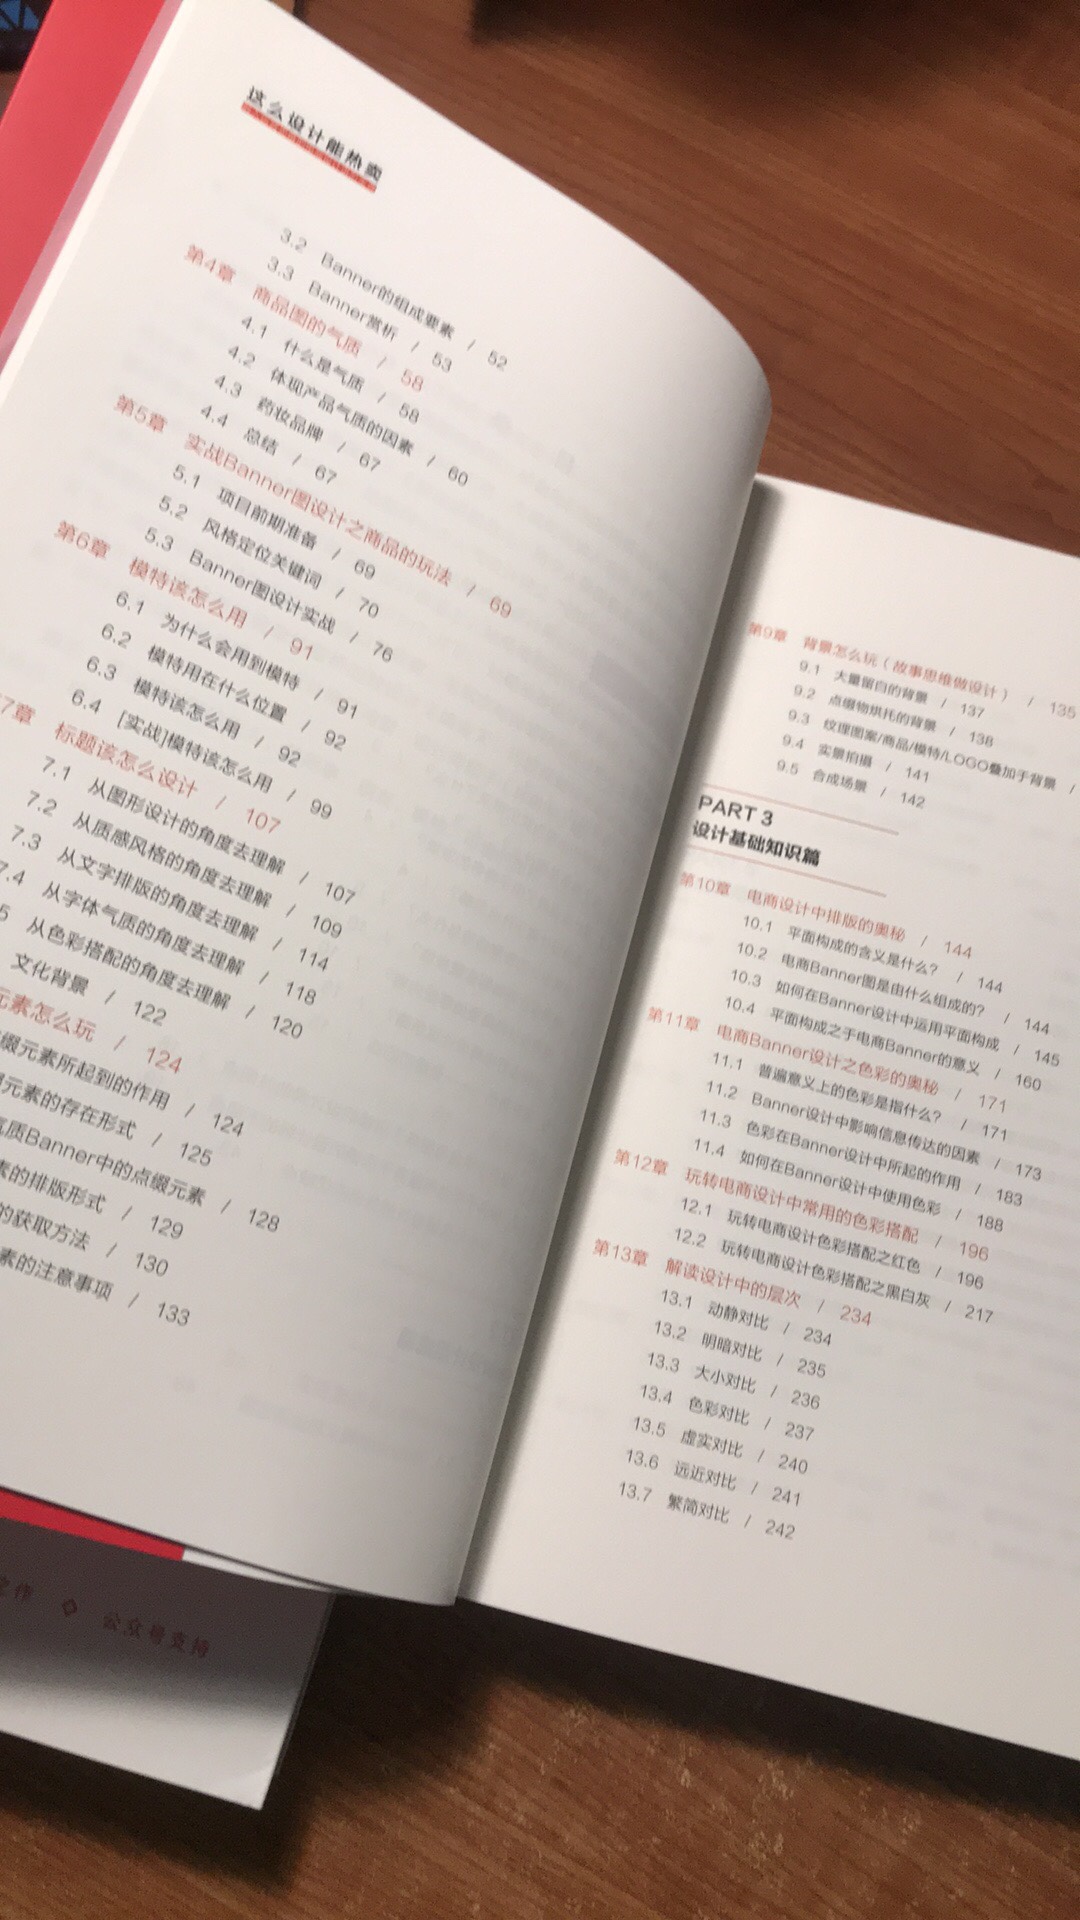 这么设计能热卖
3.2 Banner的组成要素 / 52
3.3 Banner赏析 / 53
第4章 商品图的气质 / 58
4.1 什么是气质 / 58
4.2 体现产品气质的因素 / 60
4.3 药妆品牌 / 67
4.4 总结 / 67
第5章 实战Banner图设计之商品的玩法 / 69
5.1 项目前期准备 / 69
5.2 风格定位关键词 / 70
5.3 Banner图设计实战 / 76
第6章 模特该怎么用 / 91
6.1 为什么会用到模特 / 91
6.2 模特用在什么位置 / 92
6.3 模特该怎么用 / 92
6.4 [实战]模特该怎么用 / 99
7章 标题该怎么设计 / 107
7.1 从图形设计的角度去理解 / 107
7.2 从质感风格的角度去理解 / 109
7.3 从文字排版的角度去理解 / 114
7.4 从字体气质的角度去理解 / 118
5 从色彩搭配的角度去理解 / 120
文化背景 / 122
元素怎么玩 / 124
缀元素所起到的作用 / 124
元素的存在形式 / 125
气质Banner中的点缀元素 / 128
素的排版形式 / 129
的获取方法 / 130
素的注意事项 / 133
第9章 背景怎么玩（故事思维做设计） / 135
9.1 大量留白的背景 / 137
9.2 点缀物烘托的背景 / 138
9.3 纹理图案/商品/模特/LOGO叠加于背景 /
9.4 实景拍摄 / 141
9.5 合成场景 / 142
PART 3
设计基础知识篇
第10章 电商设计中排版的奥秘 / 144
10.1 平面构成的含义是什么? / 144
10.2 电商Banner图是由什么组成的? / 144
10.3 如何在Banner设计中运用平面构成 / 145
10.4 平面构成之于电商Banner的意义 / 160
第11章 电商Banner设计之色彩的奥秘 / 171
11.1 普遍意义上的色彩是指什么? / 171
11.2 Banner设计中影响信息传达的因素 / 173
11.3 色彩在Banner设计中所起的作用 / 183
11.4 如何在Banner设计中使用色彩 / 188
第12章 玩转电商设计中常用的色彩搭配 / 196
12.1 玩转电商设计色彩搭配之红色 / 196
12.2 玩转电商设计色彩搭配之黑白灰 / 217
第13章 解读设计中的层次 / 234
13.1 动静对比 / 234
13.2 明暗对比 / 235
13.3 大小对比 / 236
13.4 色彩对比 / 237
13.5 虚实对比 / 240
13.6 远近对比 / 241
13.7 繁简对比 / 242
作 公众号支持